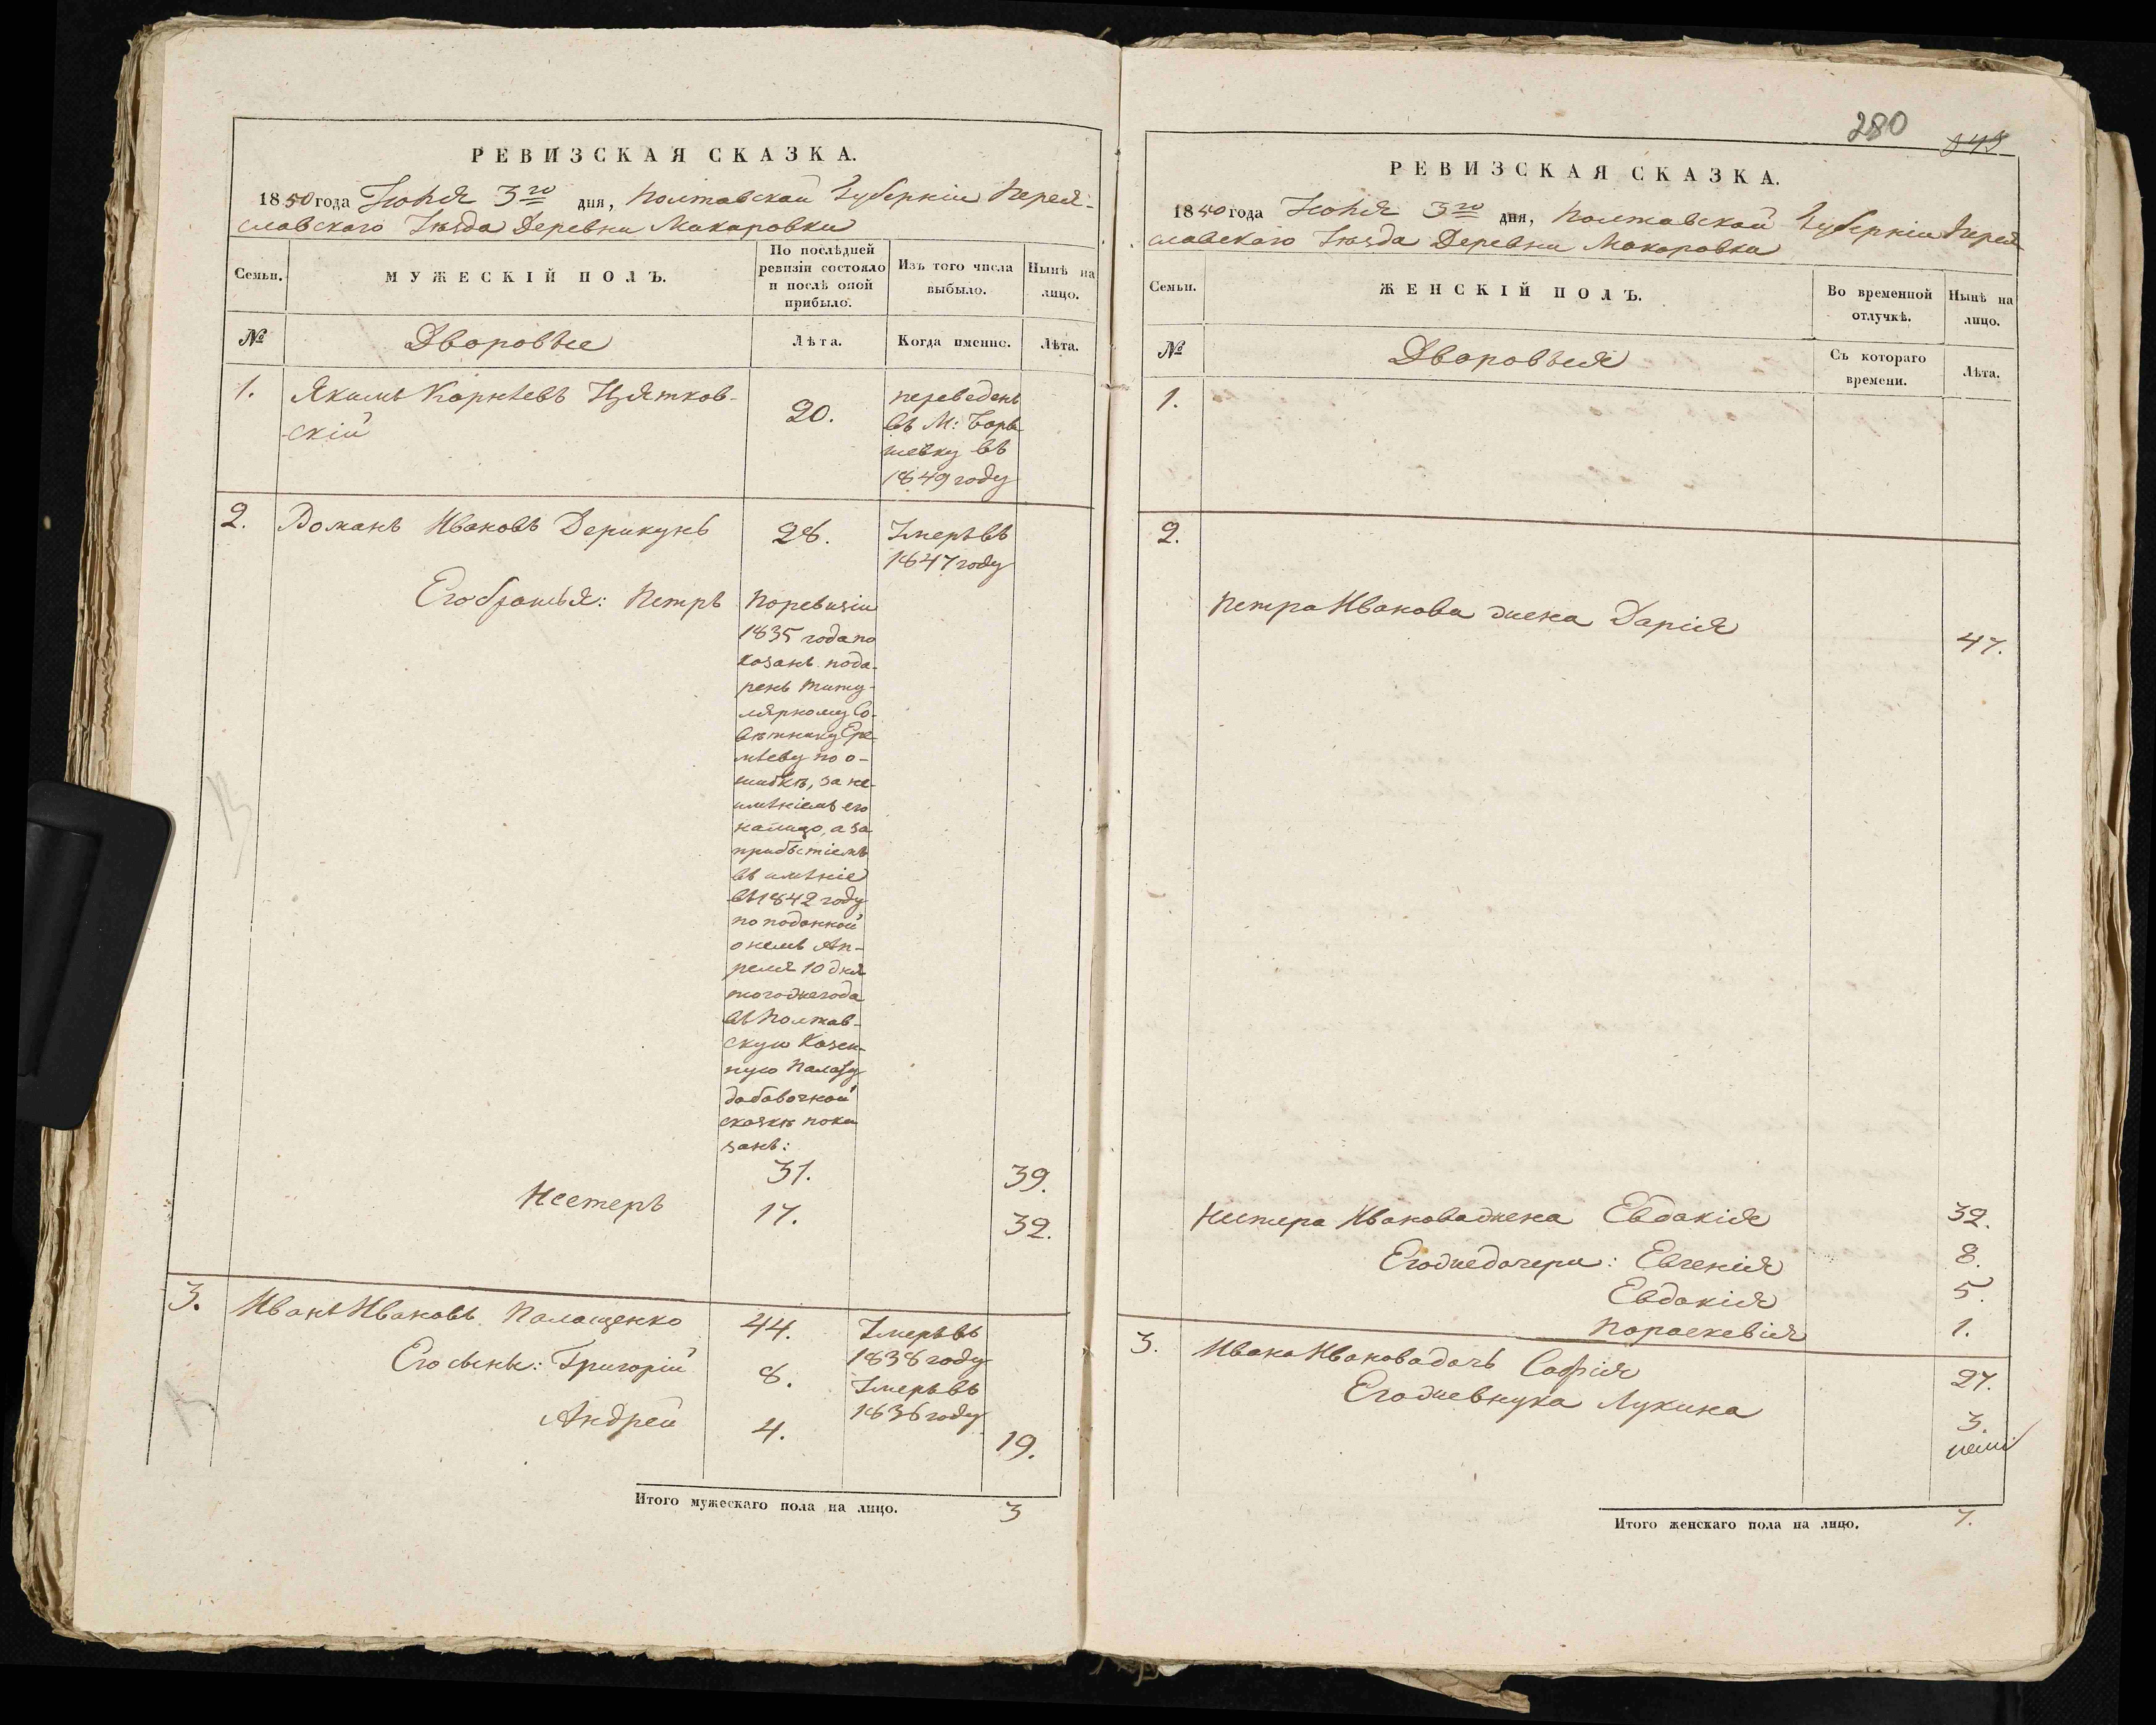 РЕВИЗСКАЯ СКАЗКА.
1850 года Іюня 3го дня, Полтавской Губерніи Перея-
славскаго Уѣзда Деревни Макаровки
Семьи.
МУЖЕСКІЙ ПОЛЪ.
По послѣдней
ревизіи состояло
и послѣ оной
прибыло.
Изъ того числа
выбыло.
Нынѣ на
лицо.
№
Дворовые
Лѣта.
Когда именно.
Лѣта.
1. Якимъ Корнѣевъ
-скій
20.
переведенъ
въ М:
въ
1849 году
2. Романъ Ивановъ Дерикунъ 28.
Умеръ въ
1847 году
Его братья: Петръ
По ревизіи
1835 года по
казанъ пода-
ренъ титу-
лярному Со-
вѣтнику Ере-
мѣеву по о-
шибкѣ, за не-
имѣніемъ его
налицо, а за
прибытіемъ
въ имѣніе
въ 1842 году
по поданной
о немъ Ап-
реля 10 дня
того же года
въ Полтав-
скую Казен-
ную Палату
добавочной
сказкѣ пока
занъ:
31. 39.
Нестеръ 17. 32.
3. Иванъ Ивановъ Палащенко 44.
Умеръ въ
1838 году
Его сыны: Григорій 8.
Умеръ въ
1836 году
Андрей 4. 19.
Итого мужескаго пола на лицо. 3
280
549
РЕВИЗСКАЯ СКАЗКА.
1850 года Іюня 3го дня, Полтавской Губерніи Перея
славскаго Уѣзда Деревни Макаровки
Семьи.
ЖЕНСКІЙ ПОЛЪ.
Во временной
отлучкѣ.
Нынѣ на
лицо.
№
Дворовыя
Съ котораго
времени.
Лѣта.
1.
2.
Петра Иванова жена Дарія 47.
Нестера Иванова жена Евдокія 32.
Его же дочери: Евгенія 8.
Евдокія 5.
Пораскевія 1.
3. Ивана Иванова дочь Софія 27.
Его же внука Лукина 3.
Итого женскаго пола на лицо. 7.